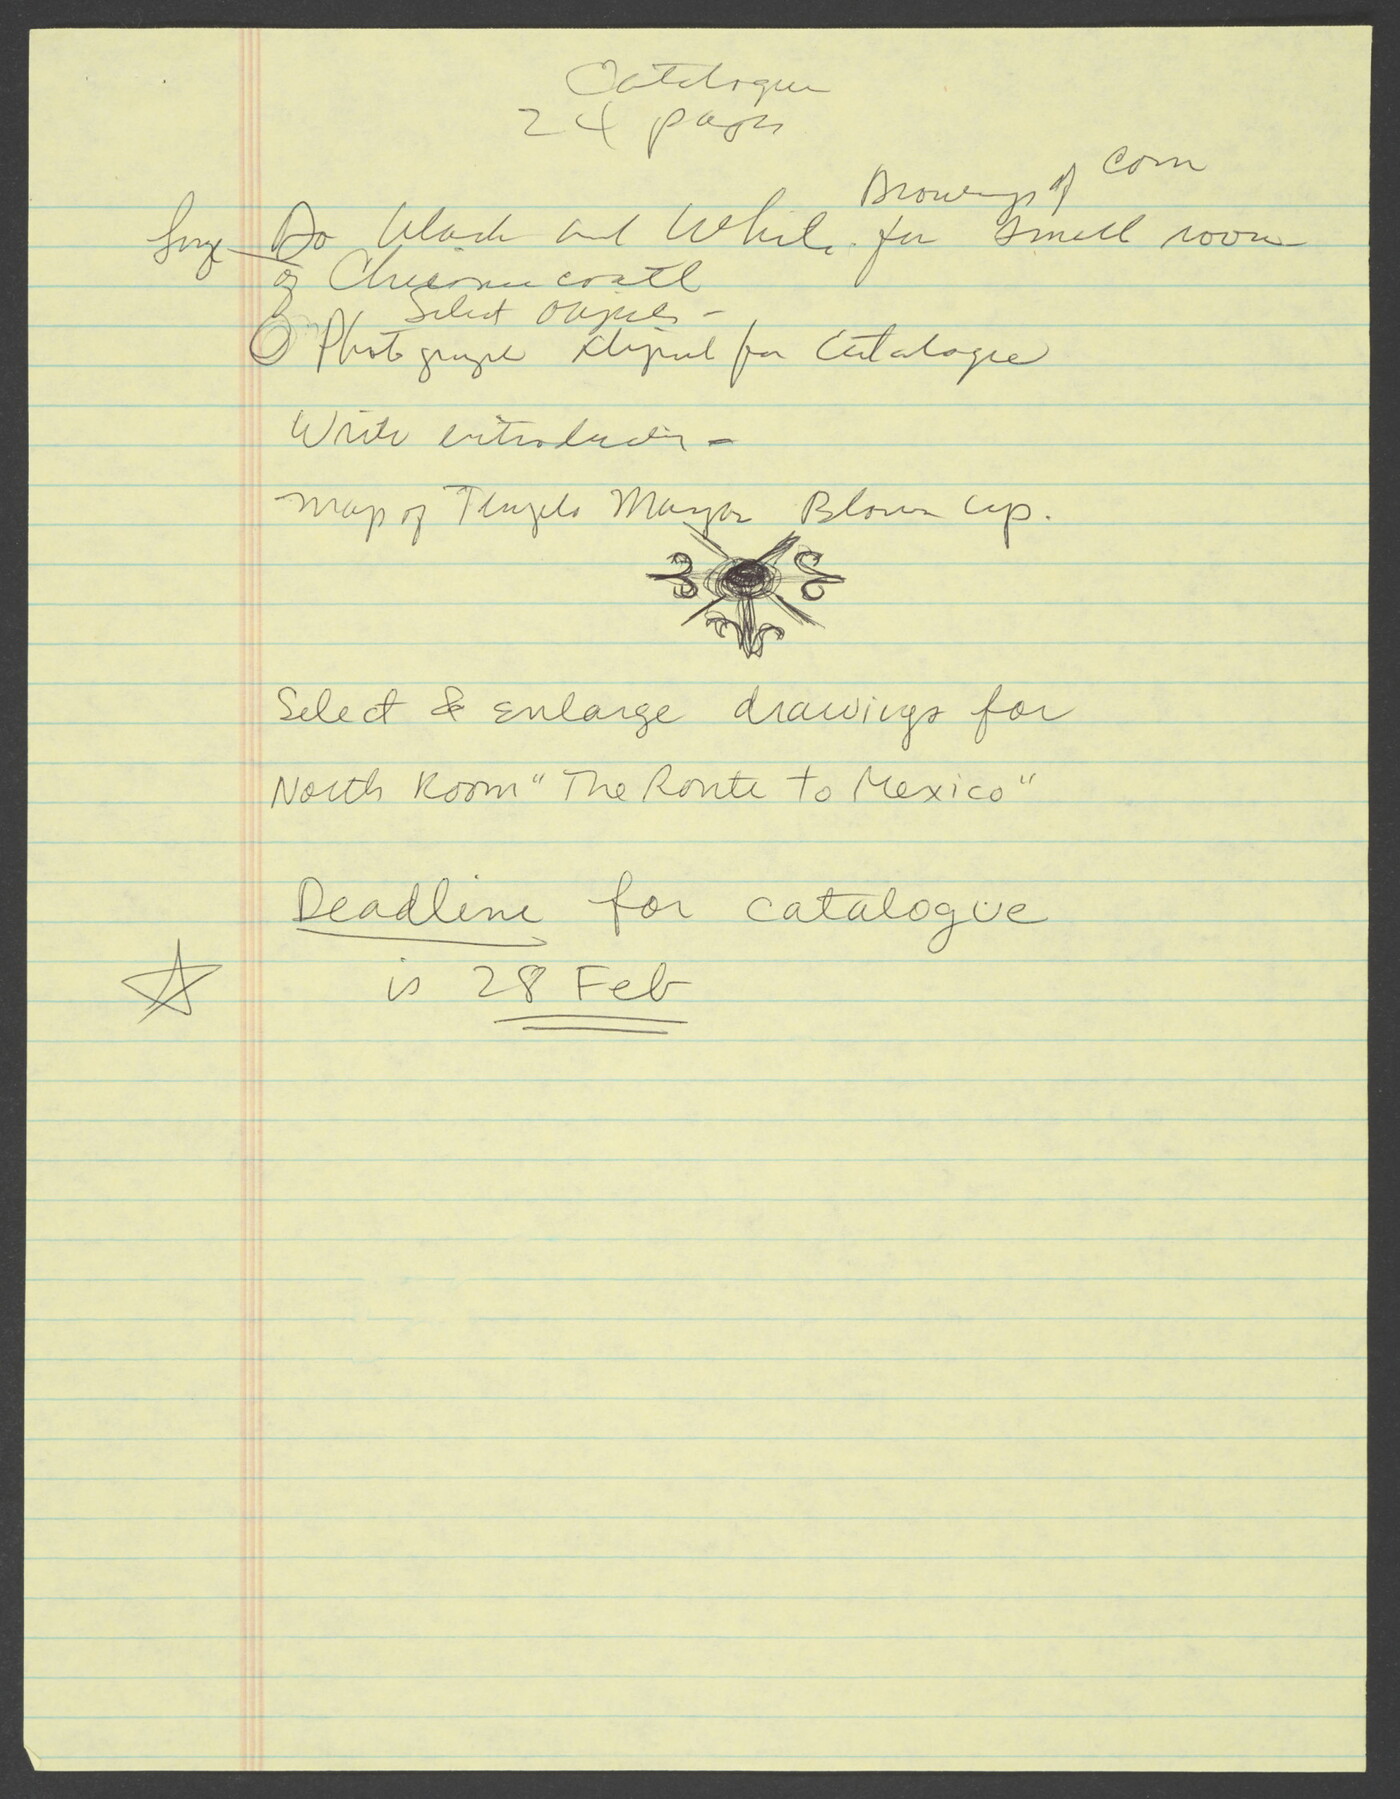 Catalogue
24 pages
Drawings of corn
Large Do black and White for small room
of Chicomecoatl
Select objects -
Photograph for Catalogue
Write introduction -
Map of Templo Mayor Blown up.
Select & enlarge drawings for
North Room "The Route to Mexico"
Deadline for catalogue
is 28 Feb